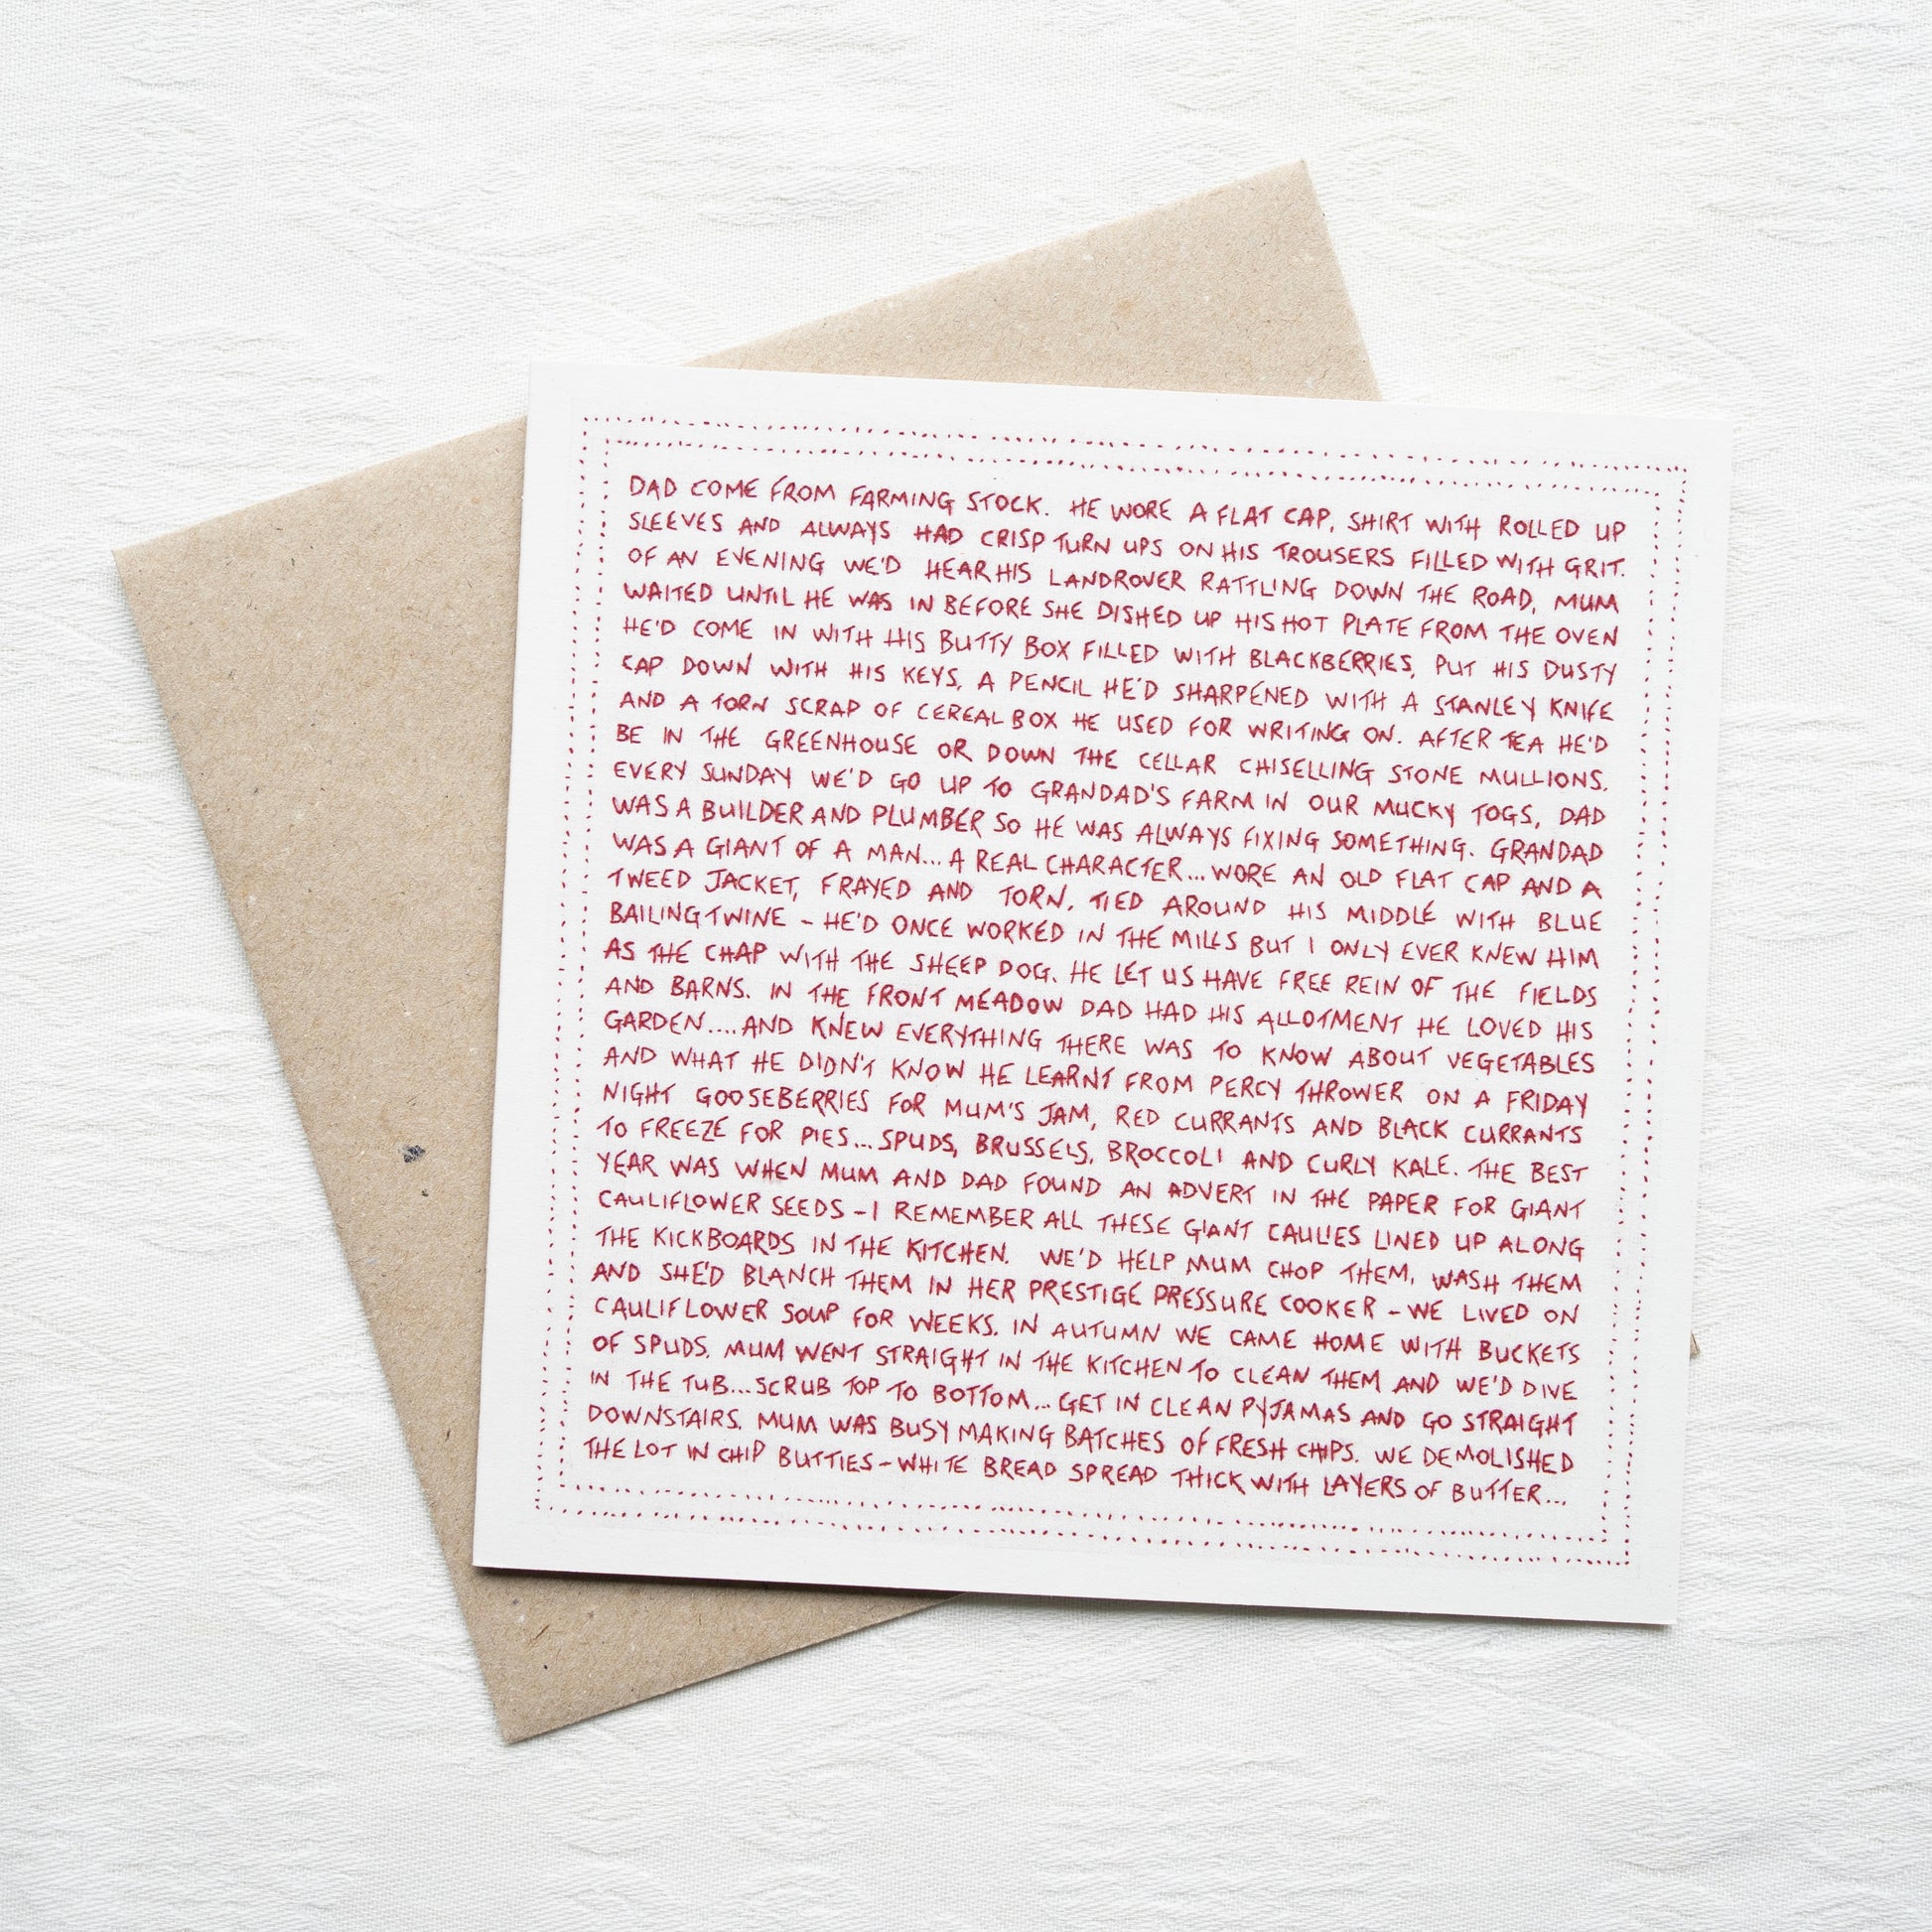 DAD COME FROM FARMING STOCK. HE WORE A FLAT CAP, SHIRT WITH ROLLED UP
SLEEVES AND ALWAYS HAD CRISP TURN UPS ON HIS TROUSERS FILLED WITH GRIT.
OF AN EVENING WE'D HEAR HIS LANDROVER RATTLING DOWN THE ROAD, MUM
WAITED UNTIL HE WAS IN BEFORE SHE DISHED UP HIS HOT PLATE FROM THE OVEN
HE'D COME IN WITH HIS BUTTY BOX FILLED WITH BLACKBERRIES, PUT HIS DUSTY
CAP DOWN WITH HIS KEYS, A PENCIL HE'D SHARPENED WITH A STANLEY KNIFE
AND A TORN SCRAP OF CEREAL BOX HE USED FOR WRITING ON. AFTER TEA HE'D
BE IN THE GREENHOUSE OR DOWN THE CELLAR CHISELLING STONE MULLIONS.
EVERY SUNDAY WE'D GO UP TO GRANDAD'S FARM IN OUR MUCKY TOGS, DAD
WAS A BUILDER AND PLUMBER SO HE WAS ALWAYS FIXING SOMETHING. GRANDAD
WAS A GIANT OF A MAN... A REAL CHARACTER... WORE AN OLD FLAT CAP AND A
TWEED JACKET, FRAYED AND TORN, TIED AROUND HIS MIDDLE WITH BLUE
BAILING TWINE - HE'D ONCE WORKED IN THE MILLS BUT I ONLY EVER KNEW HIM
AS THE CHAP WITH THE SHEEP DOG. HE LET US HAVE FREE REIN OF THE FIELDS
AND BARNS. IN THE FRONT MEADOW DAD HAD HIS ALLOTMENT HE LOVED HIS
GARDEN.... AND KNEW EVERYTHING THERE WAS TO KNOW ABOUT VEGETABLES
AND WHAT HE DIDN'T KNOW HE LEARNT FROM PERCY THROWER ON A FRIDAY
NIGHT GOOSEBERRIES FOR MUM'S JAM, RED CURRANTS AND BLACK CURRANTS
TO FREEZE FOR PIES... SPUDS, BRUSSELS, BROCCOLI AND CURLY KALE. THE BEST
YEAR WAS WHEN MUM AND DAD FOUND AN ADVERT IN THE PAPER FOR GIANT
CAULIFLOWER SEEDS - I REMEMBER ALL THESE GIANT CAULIES LINED UP ALONG
THE KICKBOARDS IN THE KITCHEN. WE'D HELP MUM CHOP THEM, WASH THEM
AND SHE'D BLANCH THEM IN HER PRESTIGE PRESSURE COOKER - WE LIVED ON
CAULIFLOWER SOUP FOR WEEKS. IN AUTUMN WE CAME HOME WITH BUCKETS
OF SPUDS. MUM WENT STRAIGHT IN THE KITCHEN TO CLEAN THEM AND WE'D DIVE
IN THE TUB... SCRUB TOP TO BOTTOM... GET IN CLEAN PYJAMAS AND GO STRAIGHT
DOWNSTAIRS. MUM WAS BUSY MAKING BATCHES OF FRESH CHIPS. WE DEMOLISHED
THE LOT IN CHIP BUTTIES - WHITE BREAD SPREAD THICK WITH LAYERS OF BUTTER...